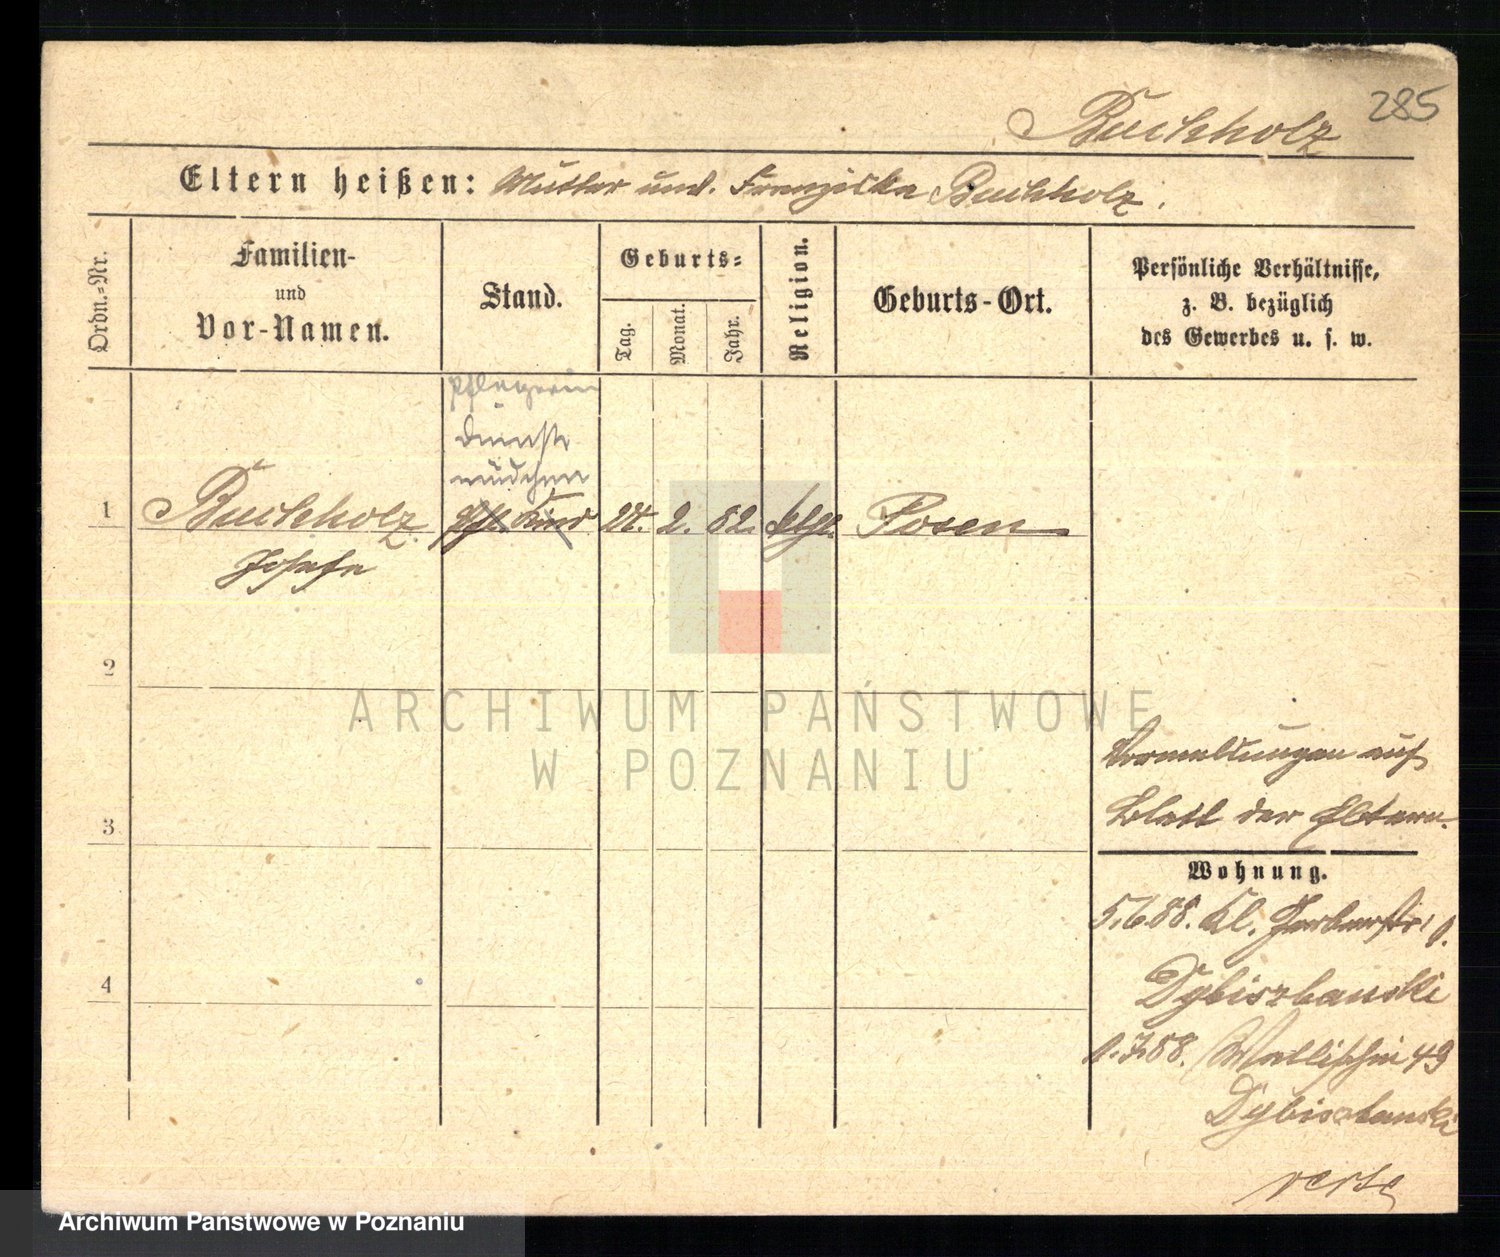 285
Buchholz
Eltern heißen: Mutter unv. Franziska Buchholz.
Ordn.=Nr.
Familien-
und
Vor-Namen.
Stand.
Geburts=
Tag.
Monat.
Jahr.
Religion.
Geburts-Ort.
Persönliche Verhältnisse,
z. B. bezüglich
des Gewerbes u. s. w.
Pflegerin
Dienst
mädchen
1 Buchholz Pfl. Kind 24. 2. 82. kthl. Posen
Josefa
2
3
4
Vormeldungen auf
Blatt der Eltern.
Wohnung.
5.6.88. Kl. Gerberstr.
Dybizbanski
1.7.88. Wallischei 49
Dybizbanski
verte
ARCHIWUM PAŃSTWOWE
W POZNANIU
Archiwum Państwowe w Poznaniu